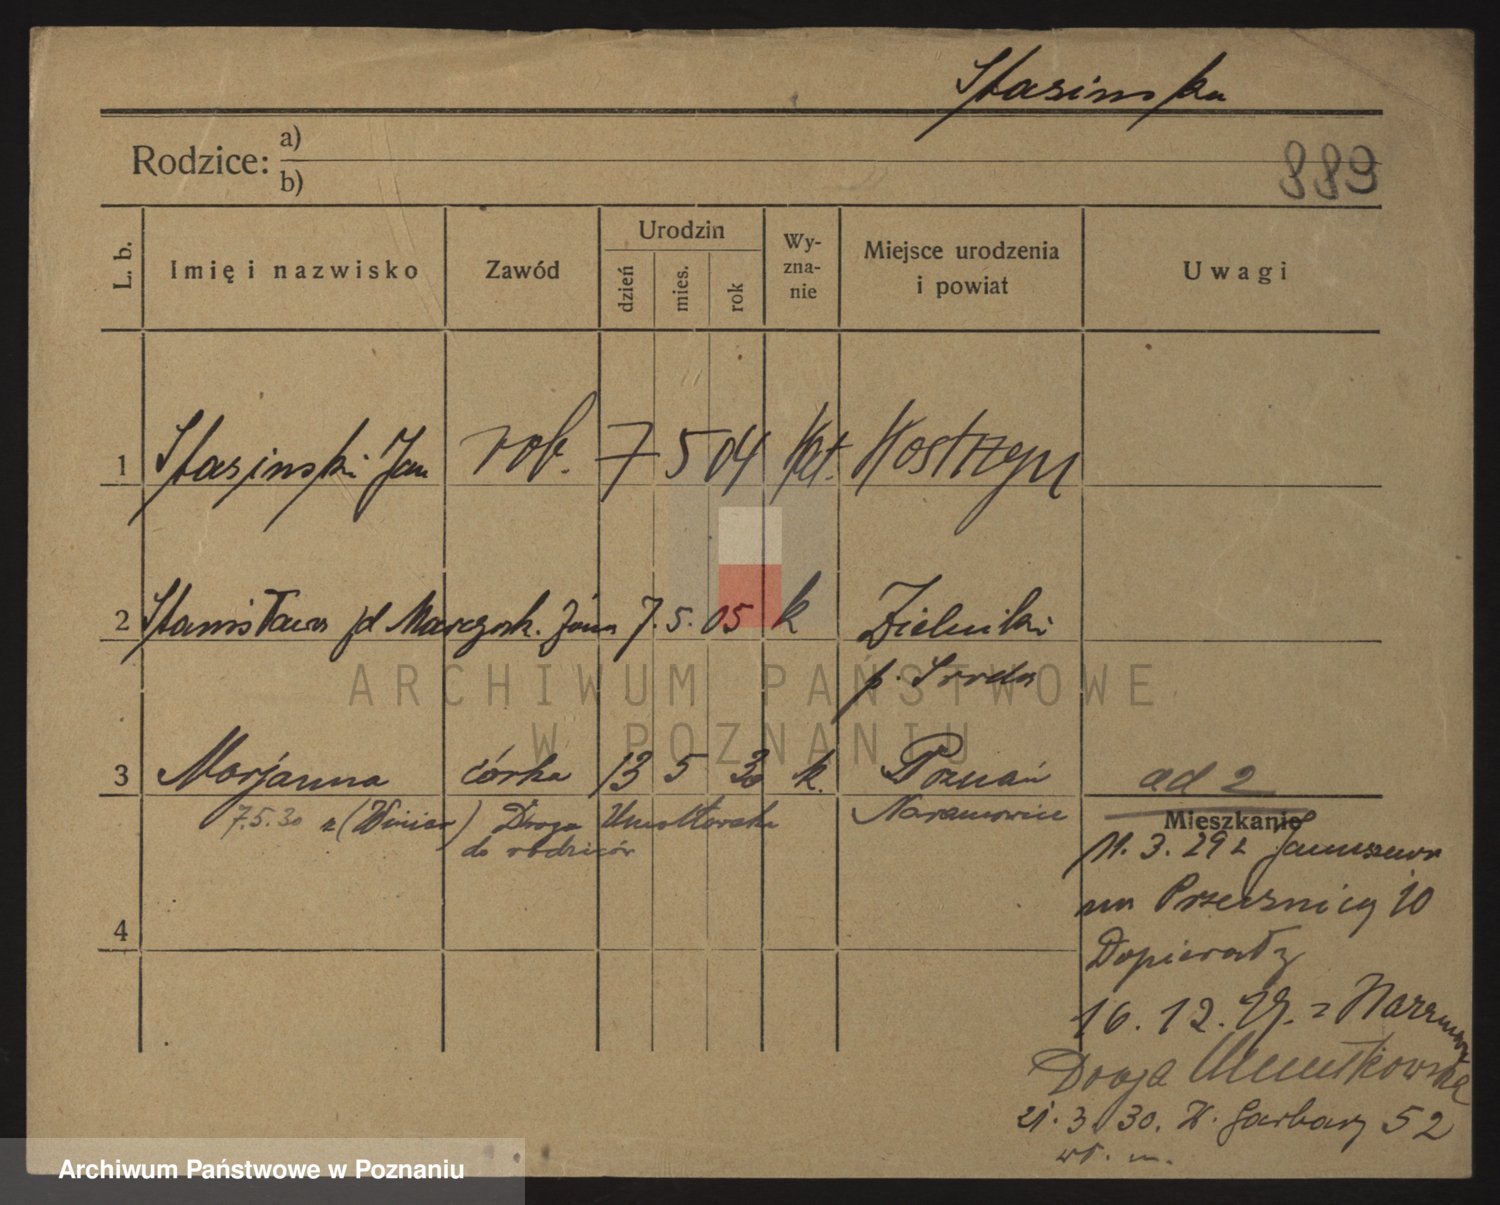 Stasinska
Rodzice: a)
b)
889
L. b.
Imię i nazwisko
Zawód
Urodzin
dzień
mies.
rok
Wy-
zna-
nie
Miejsce urodzenia
i powiat
Uwagi
1 Stasinski Jan rob. 7 5 04 kat. Kostrzyn
2 Stanisława żona 7. 5. 05 k Zielniki
p. Środa
3 Marjanna córka 13 5 30 k. Poznań ad 2
7.5.30 z (Winiar) Droga Umultowska Naramowice
do rodziców
Mieszkanie
11. 3. 29 z
na Przecznicy 10
Dopierały
16. 12. 29. z
Droga Umultowska
21. 3. 30. W. Garbary 52
wł. m.
4
ARCHIWUM PAŃSTWOWE
W POZNANIU
Archiwum Państwowe w Poznaniu